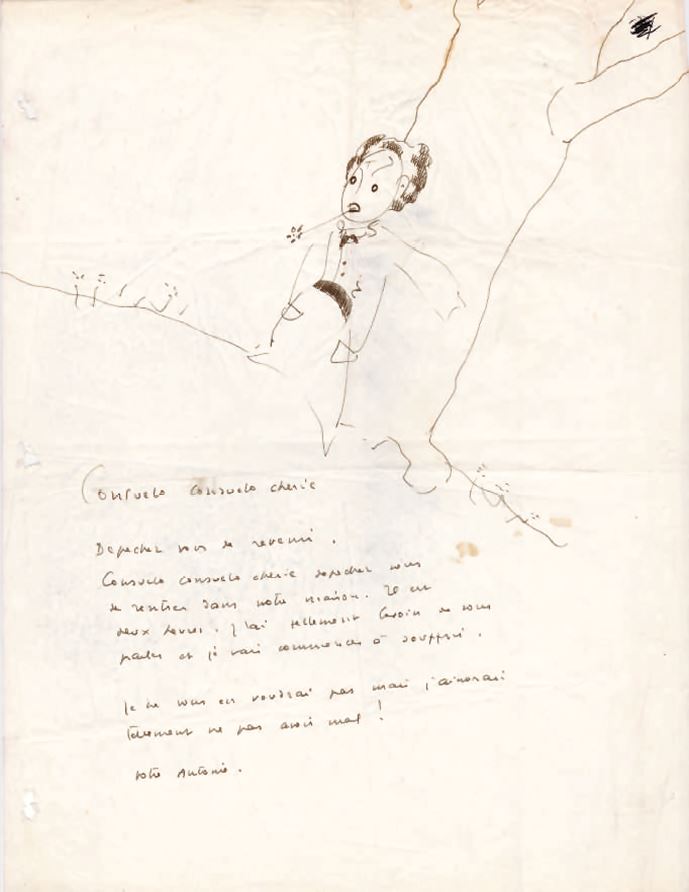 Consuelo Consuelo cherie
Depechez vous de revenir.
Consuelo consuelo cherie depechez vous
de rentrer dans notre maison. Il est
deux heures. J'ai tellement besoin de vous
parler et je vais commencer à souffrir.
Je ne vous en voudrai pas mais j'aimerais
tellement ne pas avoir mal!
votre Antoine.